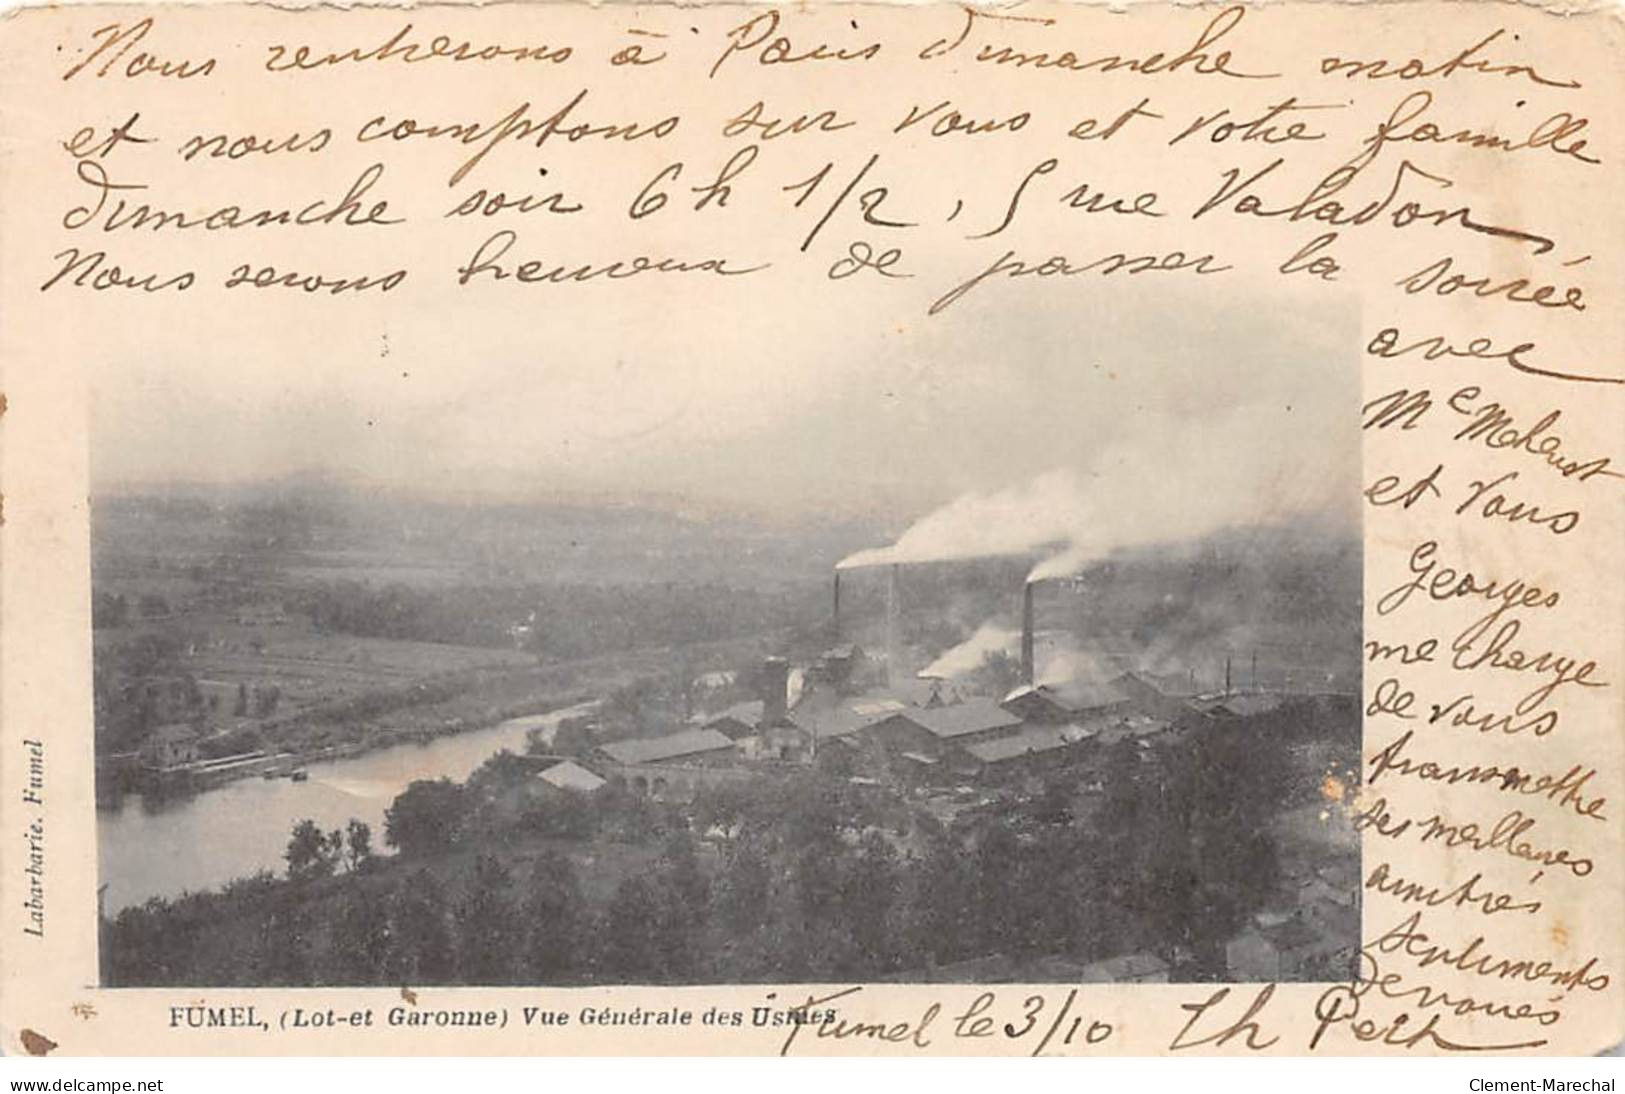 Nous rentrerons à Paris Dimanche matin
et nous comptons sur vous et votre famille
Dimanche soir 6h 1/2, 5 rue Valadon,
Nous serons heureux de passer la soirée
avec
Me Maheust
et vous
Georges
me charge
de vous
transmettre
ses meilleures
amitiés
sentiments
dévoués
Th Pert
Fumel le 3/10
FUMEL, (Lot-et Garonne) Vue Générale des Usines
Labarbarie. Fumel
delcampe.net
Clement-Marechal